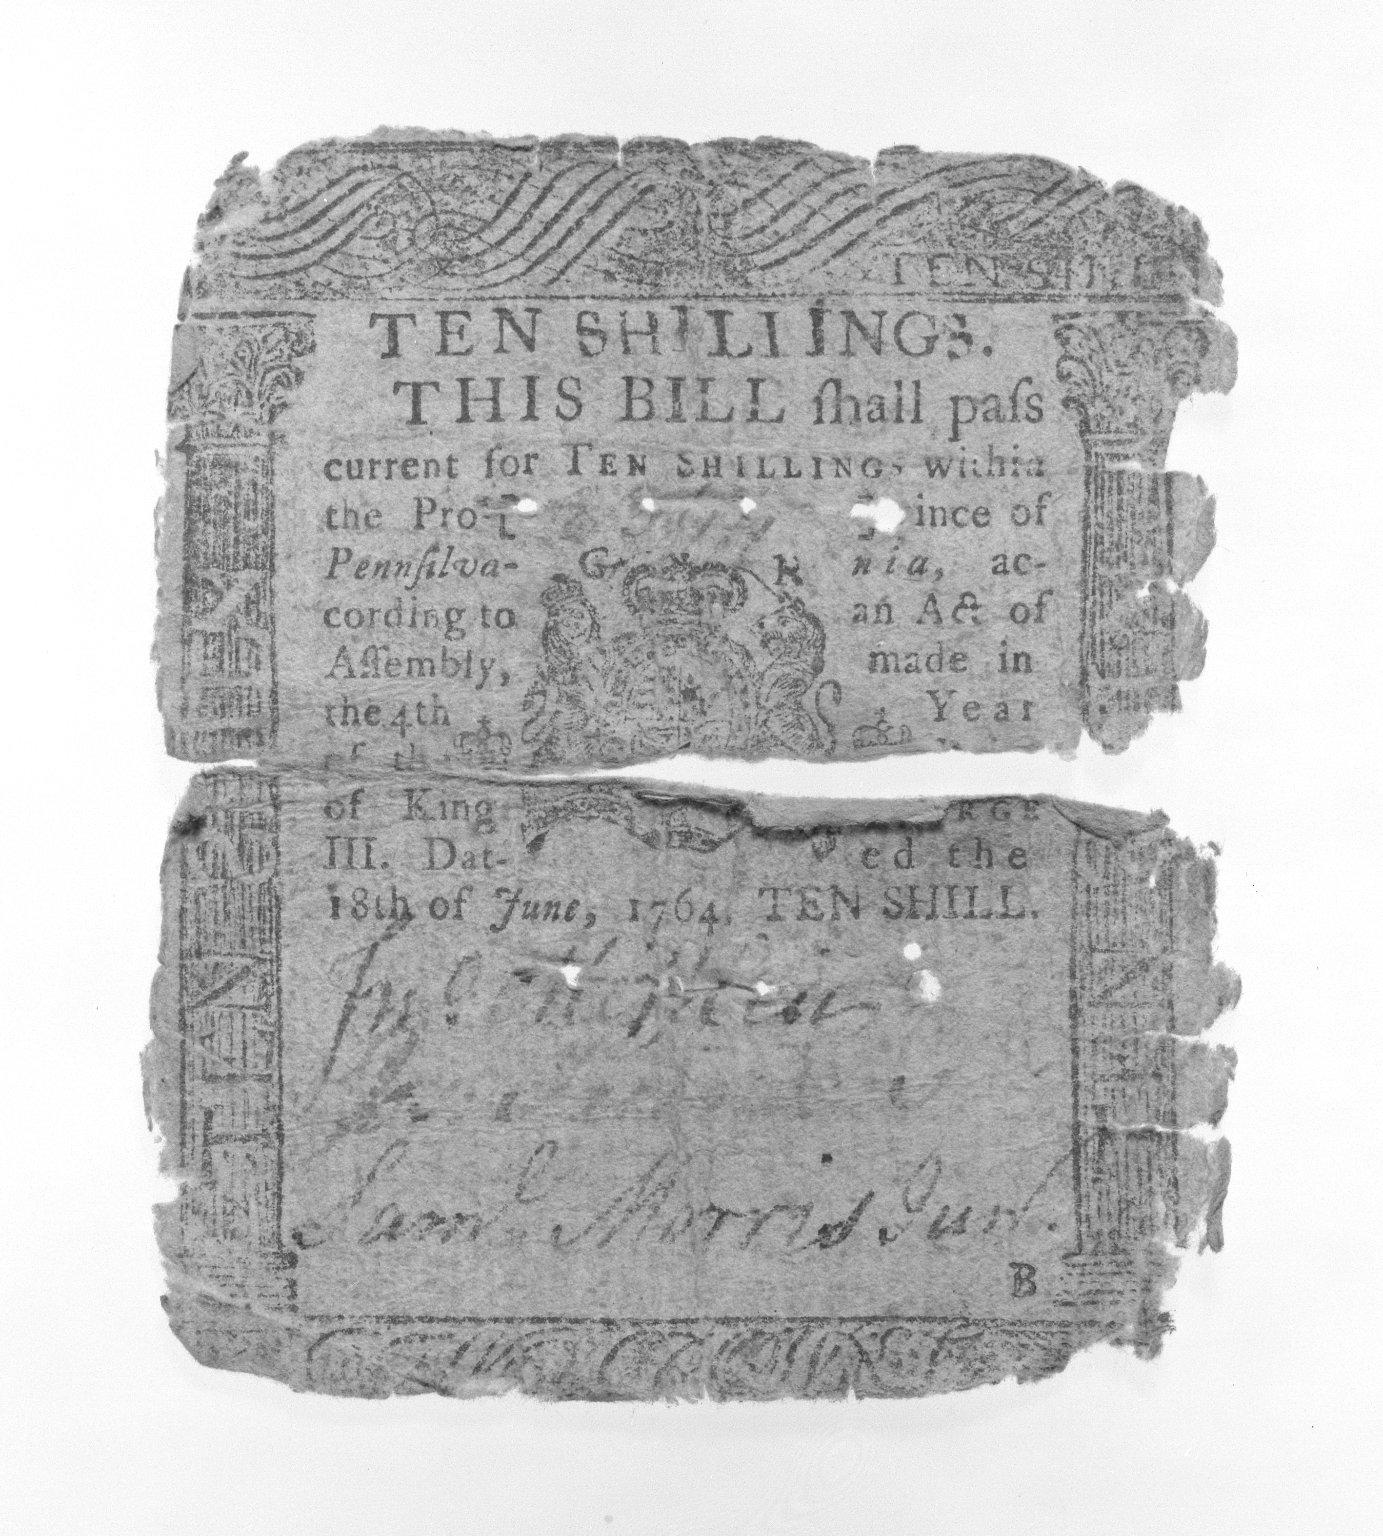 TEN SHILL
TEN SHILLINGS.
THIS BILL ſhall paſs
current for TEN SHILLINGS within
the Pro- ince of
Pennſilva- G R nia, ac-
cording to an Act of
Aſſembly, made in
the 4th Year
of King RGE
III. Dat- ed the
18th of June, 1764. TEN SHILL.
Saml. Morris Junr.
B